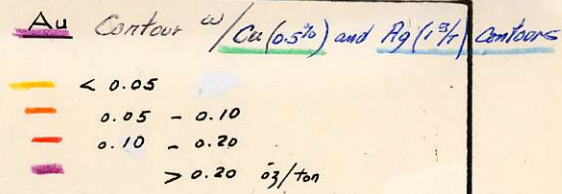 Au Contour w/ Cu (0.5%) and Ag (1 g/T) Contours
< 0.05
0.05 - 0.10
0.10 - 0.20
> 0.20 oz/ton